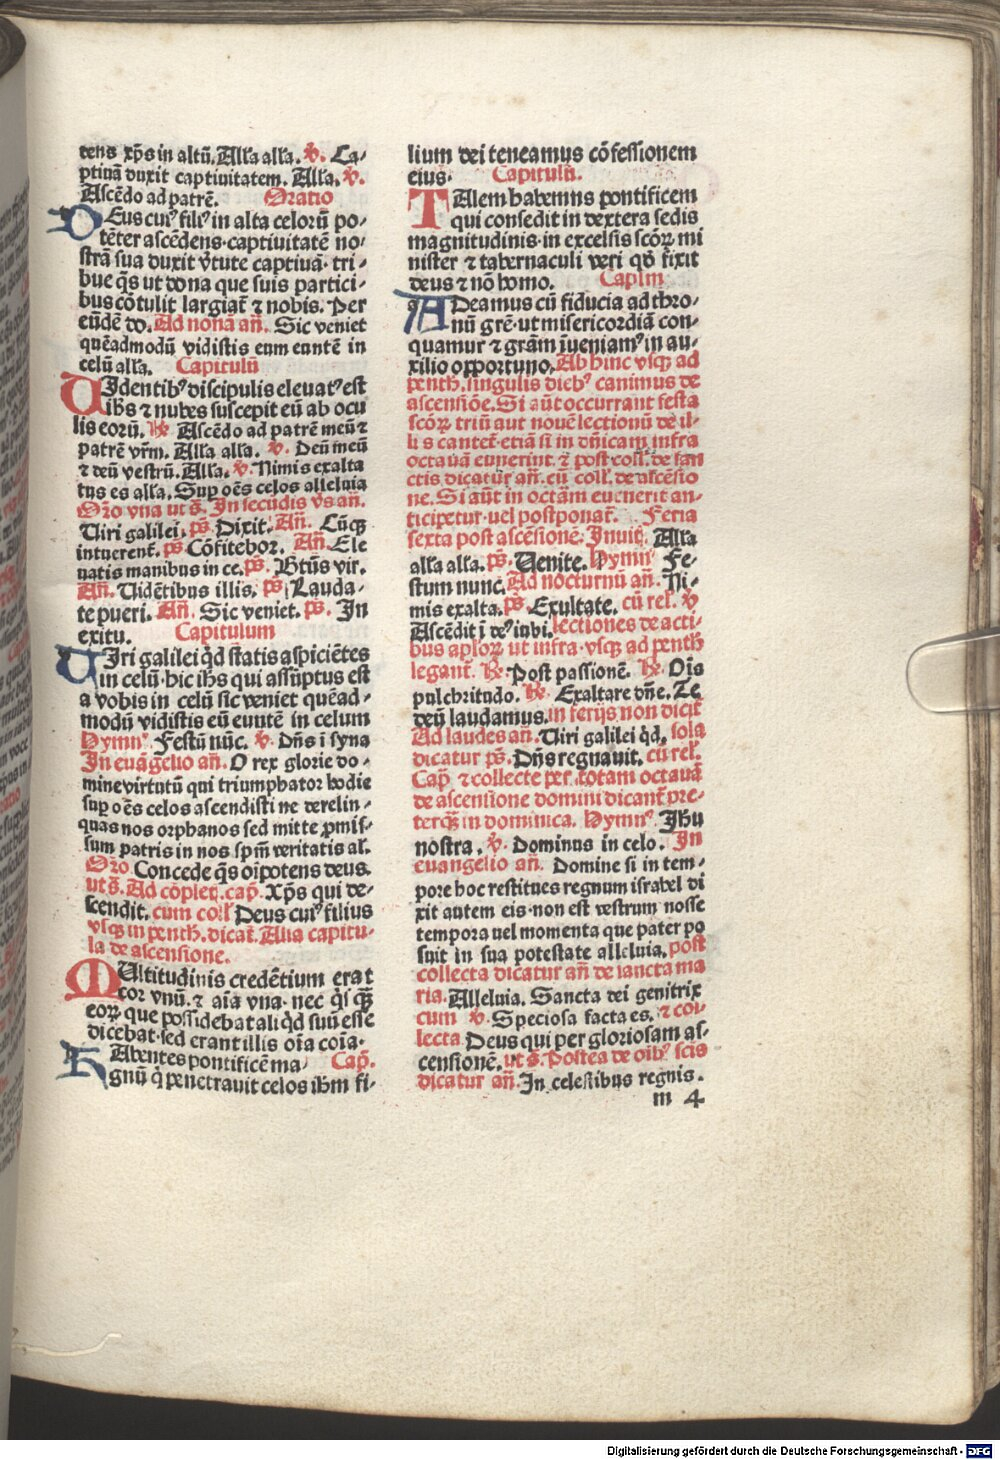 dens xp̃s in altũ. Alľa alľa. ℣. Ca⸗
ptiuã duxit captiuitatem. Alľa. ℣.
Ascẽdo ad patrẽ. Oratio
DEus cuiꝰ filiꝰ in alta celorũ po⸗
tẽter ascẽdens·captiuitatẽ no⸗
strã sua duxit ṽtute captiuã· tri⸗
bue q̃s ut dona que suis partici⸗
bus cõtulit largiat᷑ ⁊ nobis. Per
eũdẽ do. Ad nonã añ. Sic veniet
quẽadmodũ vidistis eum euntẽ in
celũ alľa. Capitulũ
VIdentibꝰ discipulis eleuatꝰ est
ihs ⁊ nubes suscepit eũ ab ocu
lis eorũ. ℞ Ascẽdo ad patrẽ meũ ⁊
patrẽ vr̃m. Alľa alľa. ℣. Deũ meũ
⁊ deũ vestrũ. Alľa. ℣. Nimis exalta
tus es alľa. Sup oẽs celos alleluia
Or̃o vna ut s̃. In secũdis vs añ.
Uiri galilei. ps̃. Dixit. Añ. Cũqꝫ
intuerent᷑. ps̃ Cõfitebor. Añ. Ele
uatis manibus in ce. ps̃. Btũs vir.
Añ. Uidẽtibus illis. ps̃. Lauda⸗
te pueri. Añ. Sic veniet. ps̃. In
exitu. Capitulum
UIri galilei q̃d statis aspiciẽtes
in celũ·hic ihs qui assũptus est
a vobis in celũ sic veniet quẽad⸗
modũ vidistis eũ euntẽ in celum
Hymnꝰ. Festũ nũc. ℣. Dñs i syna
In euãgelio añ. O rex glorie do⸗
mine virtutũ qui triumphator hodie
sup oẽs celos ascendisti ne derelin⸗
quas nos orphanos sed mitte ꝓmis⸗
sum patris in nos sp̃m veritatis aľ.
Or̃o Concede q̃s oĩpotens deus.
ut s̃. Ad cõpleť. cap̃. Xp̃s qui de⸗
scendit. cum colľ Deus cuiꝰ filius
vsqꝫ in penth. dicat᷑. Alia capitu⸗
la de ascensione.
MUltitudinis credẽtium erat
cor vnũ. ⁊ aĩa vna· nec q̃sqꝫ̃
eoꝝ que possidebat aliq̃d suũ esse
dicebat·sed erant illis oĩa coĩa·
HAbentes pontificẽ ma⸗ Cap̃.
gnũ q̃ penetrauit celos ihm fi⸗
lium dei teneamus cõfessionem
eius· Capitulũ.
TAlem habemus pontificem
qui consedit in dextera sedis
magnitudinis·in excelsis scõꝝ mi
nister ⁊ tabernaculi veri qď fixit
deus ⁊ nõ homo. Caplm
ADeamus cũ fiducia ad thro⸗
nũ grẽ·ut misericordiã con⸗
quamur ⁊ grãm ĩueniamꝰ in au⸗
xilio opportuno. Ab hinc vsqꝫ ad
penth. singulis diebꝰ canimus de
ascensiõe. Si aũt occurrant festa
scõꝝ triũ aut nouẽ lectionũ de il⸗
lis cantet᷑·etiã si in dñicam infra
octauã euenerint. ⁊ post colľ. de san
ctis dicatur añ. cũ colľ. de ascẽsio
ne. Si aũt in octãm euenerit an⸗
ticipetur·uel postponat᷑. Feria
sexta post ascẽsionẽ. Inuiť. Alľa
alľa alľa. ps̃. Uenite. Hymnꝰ Fe⸗
stum nunc. Ad nocturnũ añ. Ni⸗
mis exalta. ps̃. Exultate. cũ rel. ℣
Ascẽdit ĩ deꝰ iubi. lectiones de acti⸗
bus apľoꝝ ut infra·vsqꝫ ad penth
legant᷑. ℞. Post passionẽ. ℞. Oĩs
pulchritudo. ℞. Exaltare dñe. Te
deũ laudamus. in ferijs non dicit᷑
Ad laudes añ. Uiri galilei q̃d. sola
dicatur ps̃. Dñs regnauit. cũ rel.
Cap̃ ⁊ collecte per totam octauã
de ascensione domini dicant᷑ pre⸗
terqꝫ̃ in dominica. Hymnꝰ. Jhu
nostra. ℣. Dominus in celo. In
euangelio añ. Domine si in tem⸗
pore hoc restitues regnum israhel di
xit autem eis·non est vestrum nosse
tempora uel momenta que pater po
suit in sua potestate alleluia. post
collecta dicatur añ de sancta ma
ria. Alleluia. Sancta dei genitrix
cum ℣. Speciosa facta es. ⁊ col⸗
lecta Deus qui per gloriosam as⸗
censionẽ. ut s̃. Postea de oĩbꝰ scĩs
dicatur añ. In celestibus regnis.
m 4
Digitalisierung gefördert durch die Deutsche Forschungsgemeinschaft - DFG